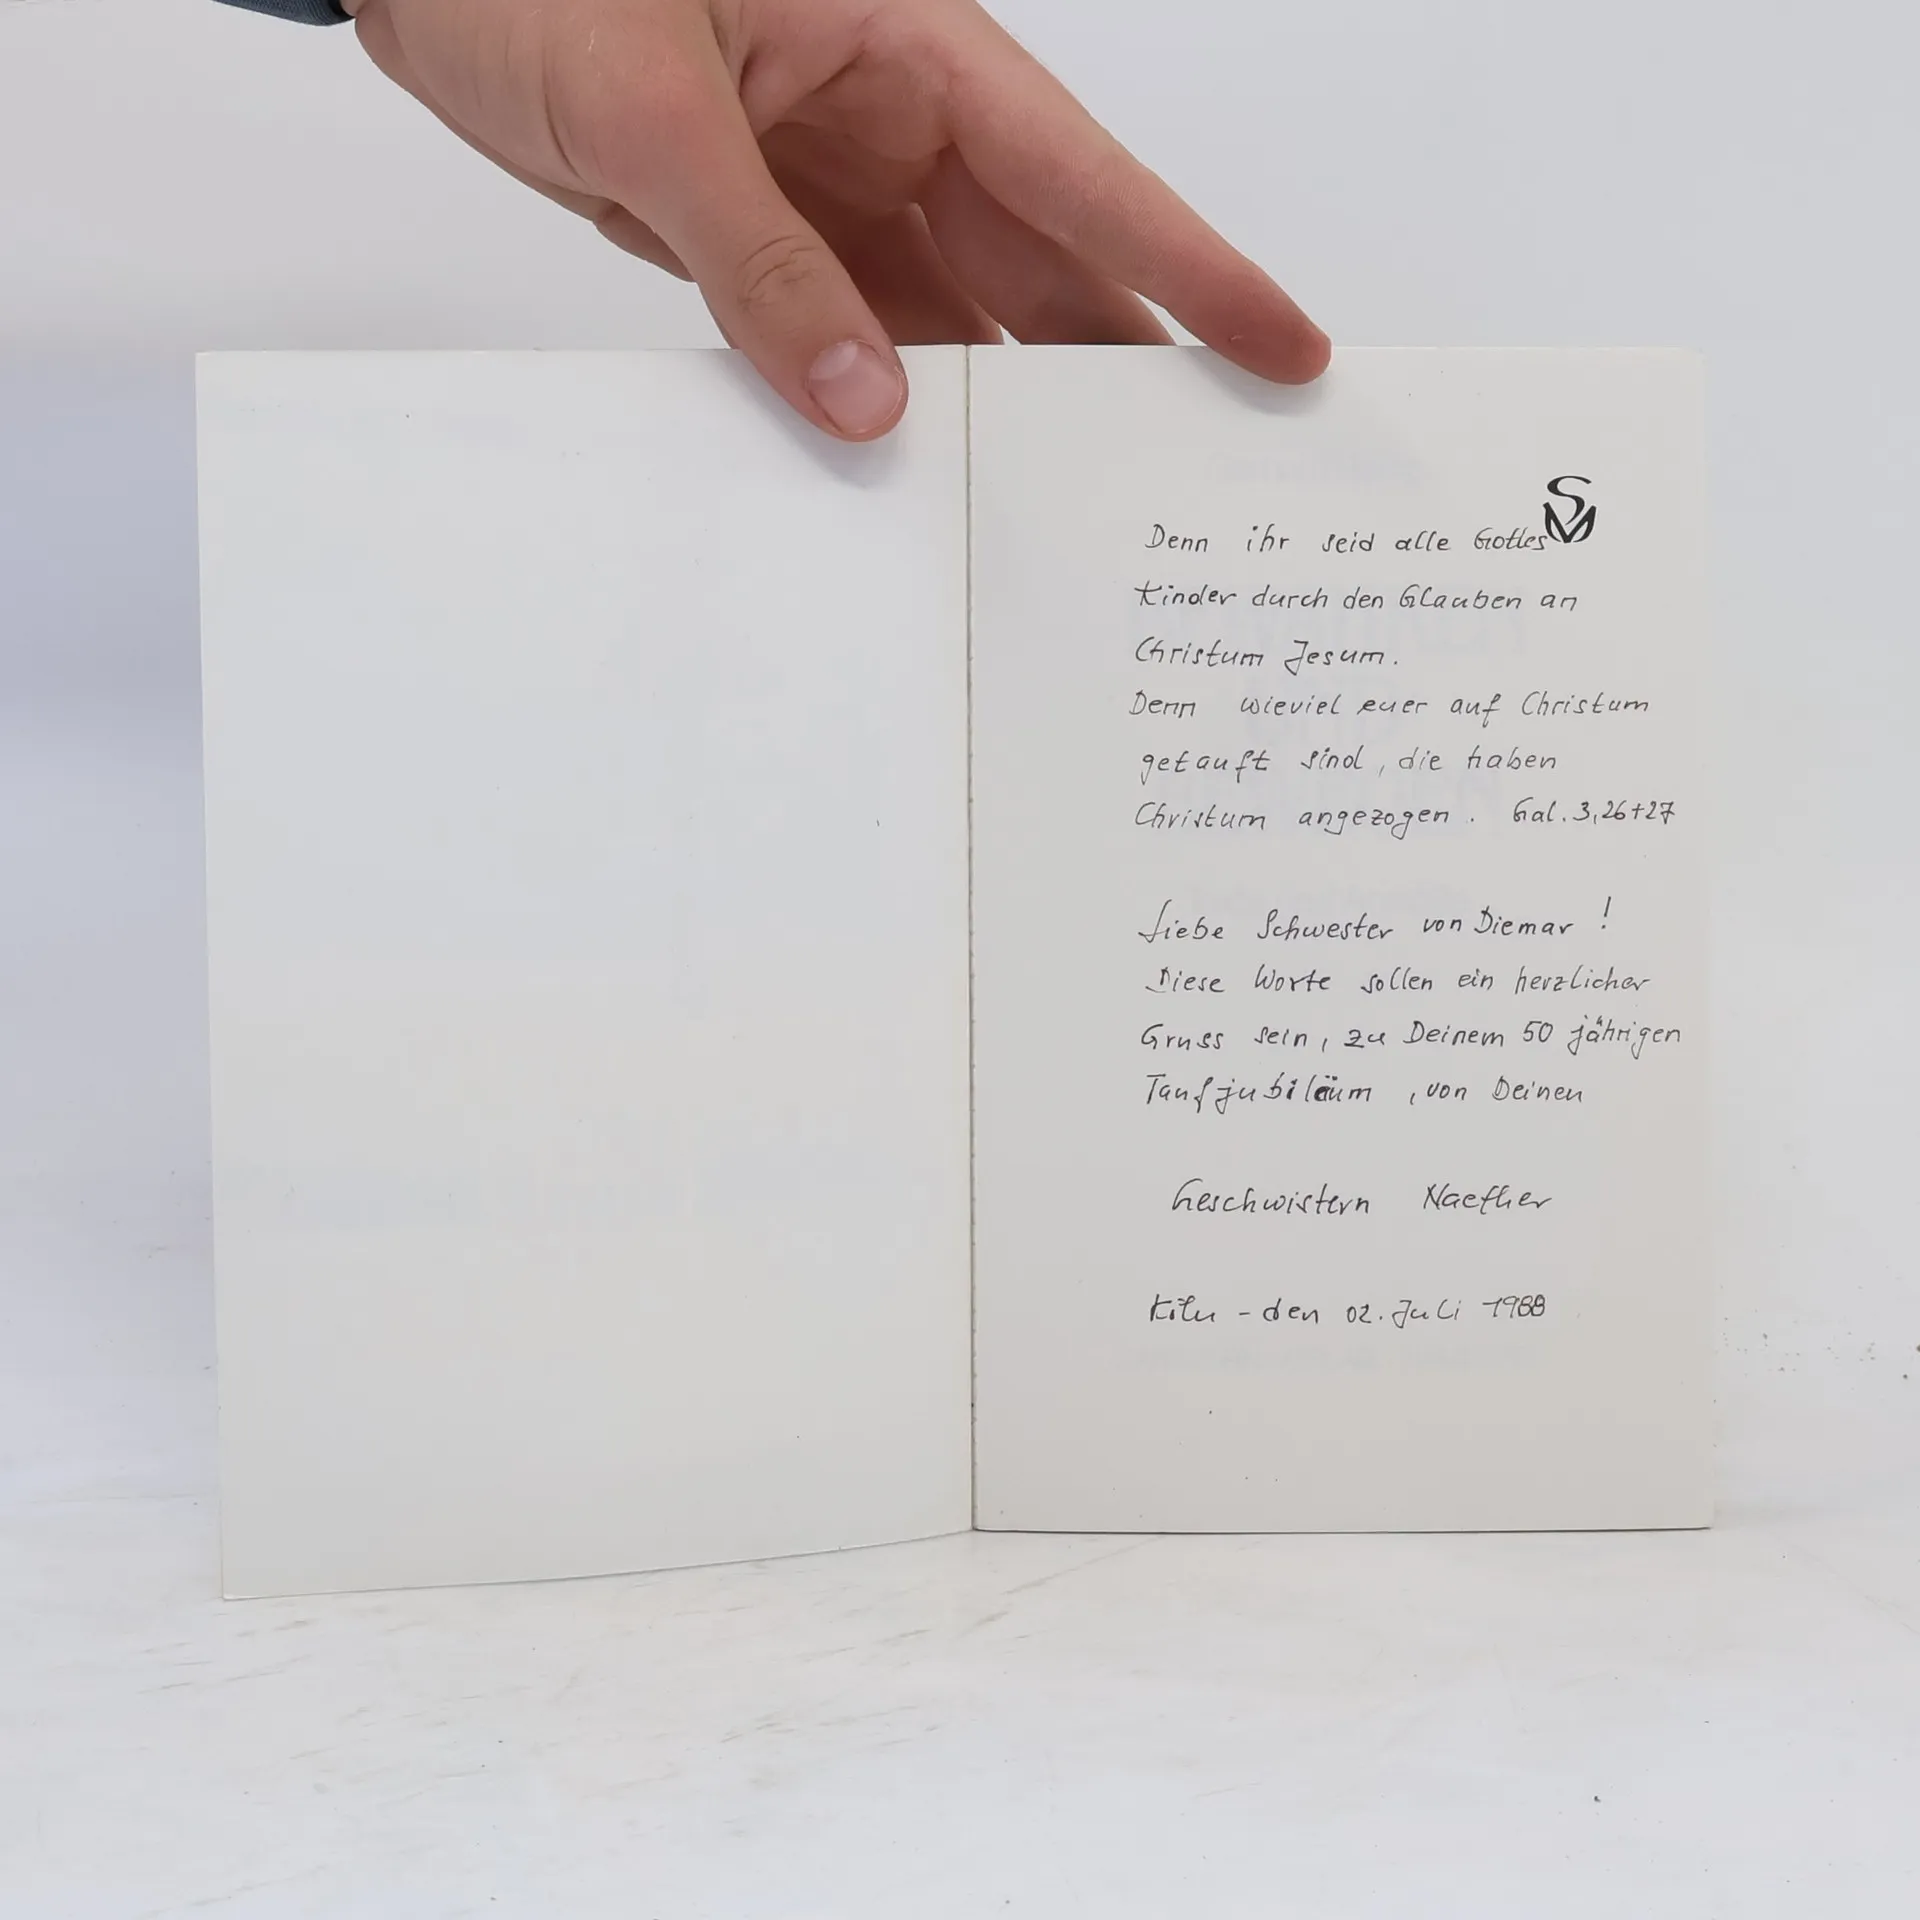 SM
Denn ihr seid alle Gottes
Kinder durch den Glauben an
Christum Jesum.
Denn wieviel euer auf Christum
getauft sind, die haben
Christum angezogen. Gal. 3,26+27
Liebe Schwester von Diemar!
Diese Worte sollen ein herzlicher
Gruss sein, zu Deinem 50 jährigen
Taufjubiläum, von Deinen
Geschwistern Naether
Köln - den 02. Juli 1988